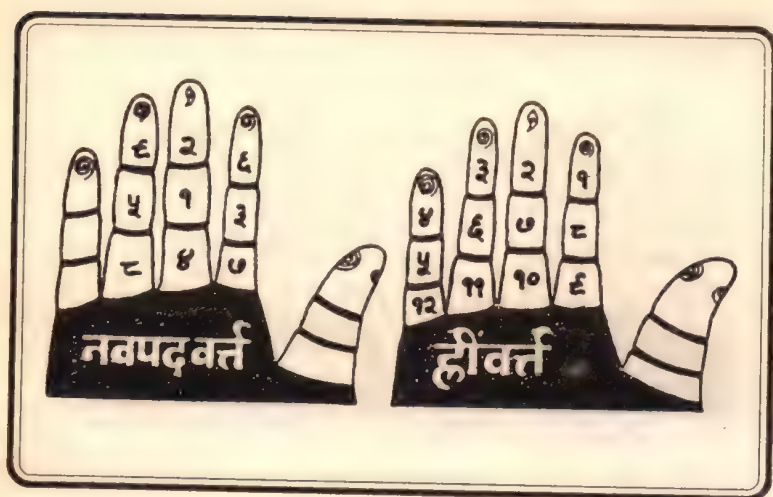 ९ २ ६
५ १ ३
८ ४ ७
नवपदवर्त्त
४ ३ २ १
५ ६ ७ ८
१२ ११ १० ९
ह्रींवर्त्त